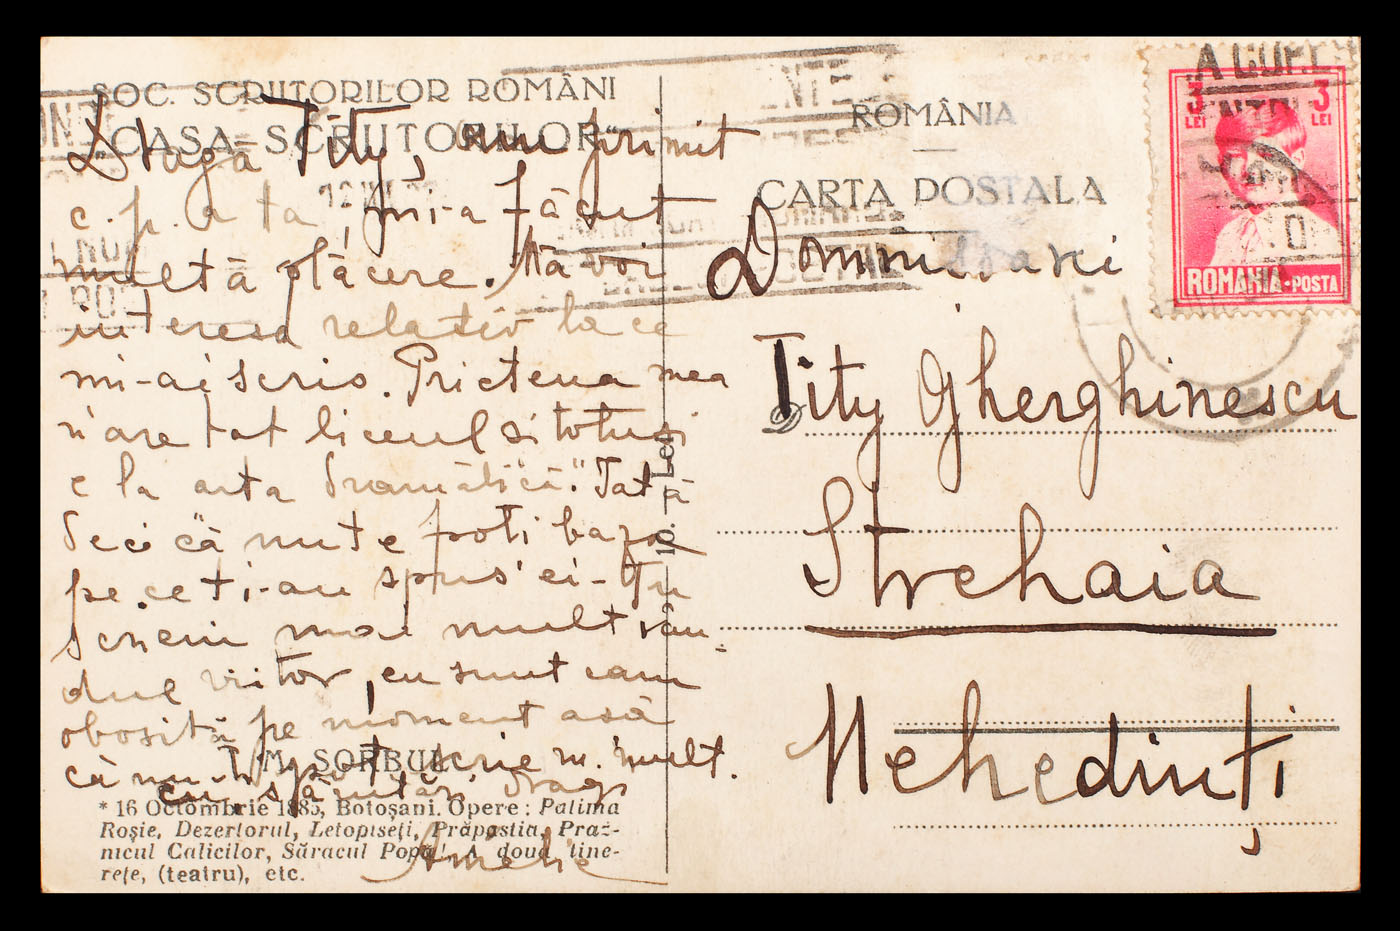 SOC. SCRIITORILOR ROMÂNI
„CASA SCRIITORILOR"
Dragă Tity, am primit
c. p. a ta, mi-a făcut
multă plăcere. Mă voi
interesa relativ la ce
mi-ai scris. Prietena mea
n'are tot liceul și totuși
e la arta dramatică". Iată
deci că nu te poti baza
pe ce ti-au spus ei - Iți
scriu mai mult rân-
dul viitor, eu sunt cam
obosită pe moment asă
că nu-ți pot scrie m. mult.
cu sărutări, drag
Amelie
T. M. SORBUL
* 16 Octombrie 1885, Botoșani. Opere: Patima
Roșie, Dezertorul, Letopiseți, Prăpastia, Praz-
nicul Calicilor, Săracul Popă! A doua tine-
rețe, (teatru), etc.
10. Lei
ROMÂNIA
CARTA POSTALA
Domnișoarei
D
Tity Gherghinescu
Strehaia
Mehedinți
3 LEI 3 LEI
ROMANIA·POSTA